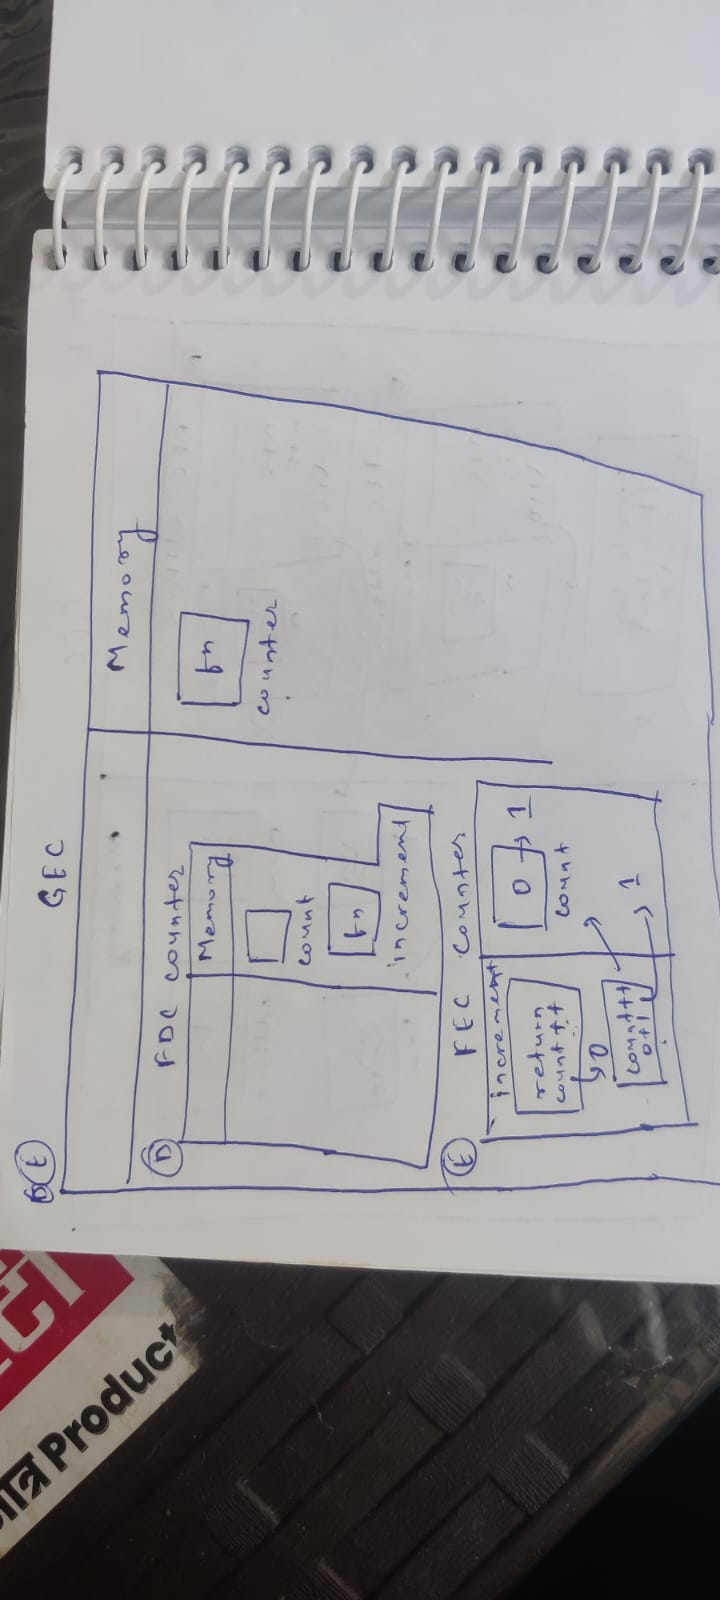 GEC
Memory
fn
counter
FDC counter
Memory
count
fn
incremend
D
FEC counter
E
increment
return
count++
0
count++
0+1
1
0 → 1
count
Product